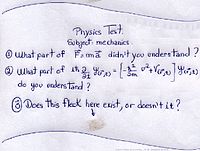 Physics Test.
Subject: mechanics.
① What part of F⃗=ma⃗ didn't you understand?
② What part of iħ ∂/∂t Ψ(r,t) = [-ħ²/2m ∇² + V(r,t)] Ψ(r,t)
do you understand?
③ Does this flock here exist, or doesn't it?